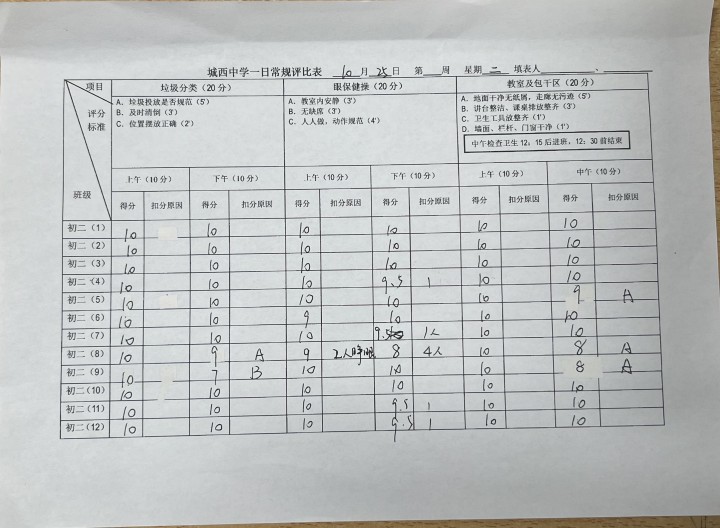 城西中学一日常规评比表 10月25日 第 周 星期 二 填表人 、
项目 垃圾分类（20分） 眼保健操（20分） 教室及包干区（20分）
评分标准
A、垃圾投放是否规范（5'）
B、及时清倒（3'）
C、位置摆放正确（2'）
A、教室内安静（3'）
B、无缺席（3'）
C、人人做，动作规范（4'）
A、地面干净无纸屑，走廊无污迹（5'）
B、讲台整洁，课桌排放整齐（3'）
C、卫生工具放整齐（1'）
D、墙面、栏杆、门窗干净（1'）
中午检查卫生12：15后进班，12：30前结束
上午（10分） 下午（10分） 上午（10分） 下午（10分） 上午（10分） 中午（10分）
班级 得分 扣分原因 得分 扣分原因 得分 扣分原因 得分 扣分原因 得分 扣分原因 得分 扣分原因
初二（1） 10 10 10 10 10 10
初二（2） 10 10 10 10 10 10
初二（3） 10 10 10 10 10 10
初二（4） 10 10 10 9.5 1 10 10
初二（5） 10 10 10 10 10 9 A
初二（6） 10 10 9 10 10 10
初二（7） 10 10 10 9.5 1人 10 10
初二（8） 10 9 A 9 2人睁眼 8 4人 10 8 A
初二（9） 10 7 B 10 10 10 8 A
初二（10） 10 10 10 10 10 10
初二（11） 10 10 10 9.5 1 10 10
初二（12） 10 10 10 9.5 1 10 10